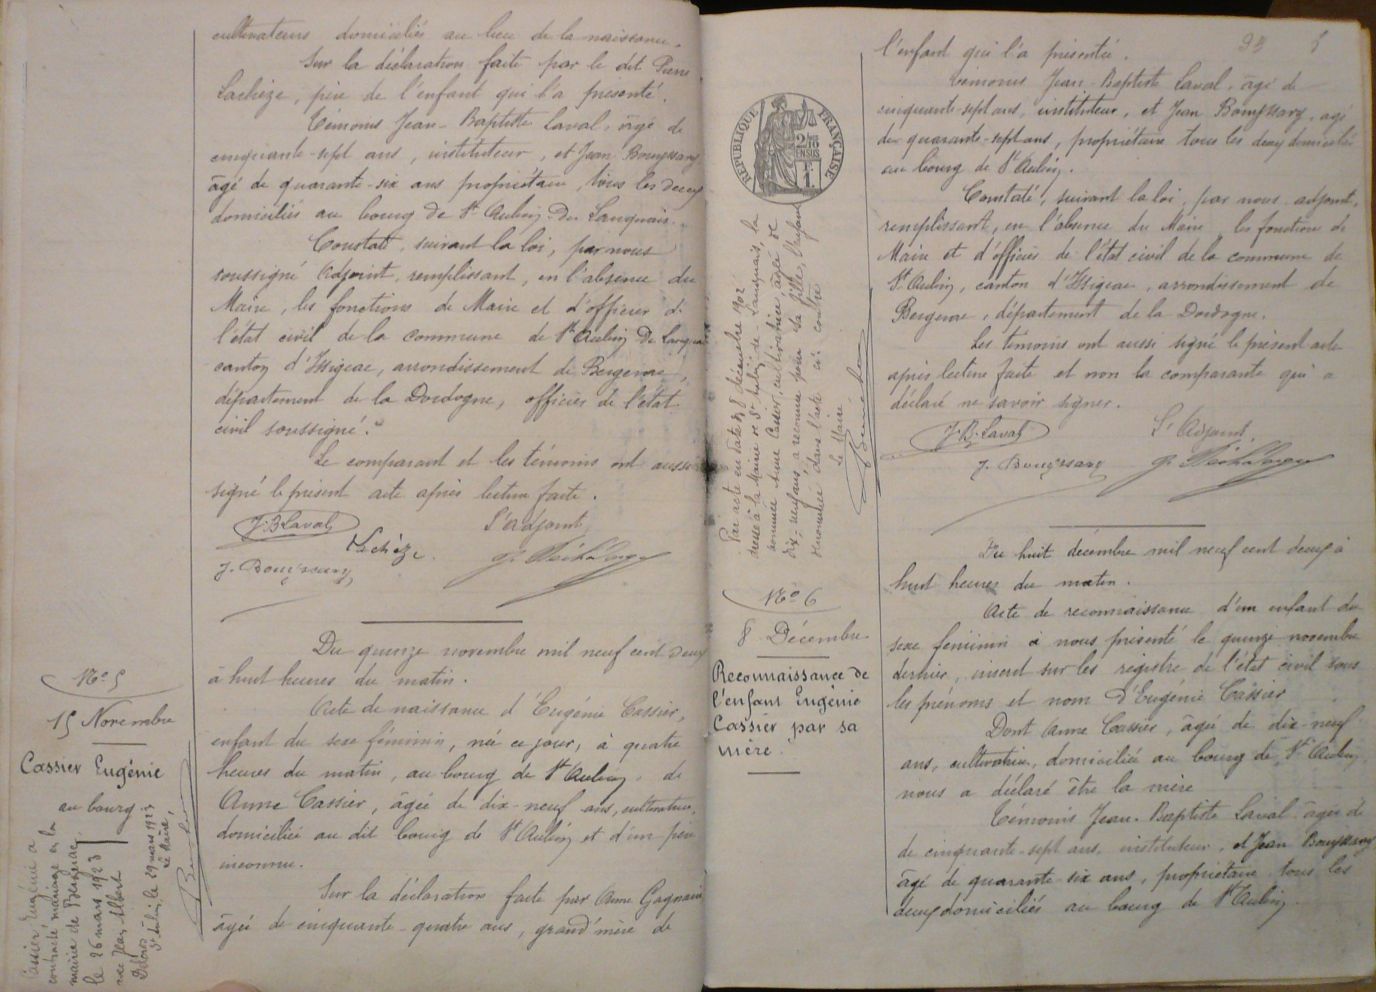 cultivateurs domiciliés au lieu de la naissance.
Sur la déclaration faite par le dit Pierre
Lachèze, père de l'enfant qui l'a présenté.
Témoins Jean-Baptiste Laval, âgé de
cinquante-sept ans, instituteur, et Jean Bouyssavy
âgé de quarante-six ans propriétaire, tous les deux
domiciliés au bourg de St Aubin-de-Lanquais.
Constaté, suivant la loi, par nous
soussigné Adjoint, remplissant, en l'absence du
Maire, les fonctions de Maire et d'officier de
l'état civil de la commune de St Aubin De Lanquais
canton d'Issigeac, arrondissement de Bergerac,
département de la Dordogne, officier de l'état
civil soussigné.
Le comparant et les témoins ont aussi
signé le présent acte après lecture faite.
J.B. Laval
Lachèze
L'adjoint,
J. Bouyssavy
Nº 5
15 Novembre
Cassier Eugénie
au bourg
Cassier Eugénie a
contracté mariage en la
mairie de Bergerac
le 26 mars 1923
avec Jean Albert
St Aubin, le 29 mars 1923
Le Maire,
Du quinze novembre mil neuf cent deux
à huit heures du matin.
Acte de naissance d'Eugénie Cassier,
enfant du sexe féminin, née ce jour, à quatre
heures du matin, au bourg de St Aubin, de
Anne Cassier, âgée de dix-neuf ans, cultivatrice,
domiciliée au dit bourg de St Aubin et d'un père
inconnu.
Sur la déclaration faite par Anne Gagnaire
âgée de cinquante-quatre ans, grand'mère de
95
5
l'enfant qui l'a présentée.
Témoins Jean-Baptiste Laval, âgé de
cinquante-sept ans, instituteur, et Jean Bouyssavy, âgé
de quarante-sept ans, propriétaire tous les deux domiciliés
au bourg de St Aubin.
Constaté, suivant la loi, par nous adjoint,
remplissant, en l'absence du Maire, les fonctions de
Maire et d'officier de l'état civil de la commune de
St Aubin, canton d'Issigeac, arrondissement de
Bergerac, département de la Dordogne.
Les témoins ont aussi signé le présent acte
après lecture faite et non la comparante qui a
déclaré ne savoir signer.
J.B. Laval
L'Adjoint,
J. Bouyssavy
RÉPUBLIQUE FRANÇAISE
2/10 EN SUS
Par acte en date du 8 décembre 1902
dressé à la Mairie de St Aubin de Lanquais, la
nommée Anne Cassier, cultivatrice âgée de
dix-neuf ans, a reconnu pour sa fille, l'enfant
dénommée dans l'acte ci-contre
Le Maire
Nº 6
8 Décembre
Reconnaissance de
l'enfant Eugénie
Cassier par sa
mère.
Du huit décembre mil neuf cent deux à
huit heures du matin.
Acte de reconnaissance d'un enfant du
sexe féminin à nous présenté le quinze novembre
dernier, inscrit sur les registre de l'état civil sous
les prénoms et nom d'Eugénie Cassier
Dont Anne Cassier, âgée de dix-neuf
ans, cultivatrice, domiciliée au bourg de St Aubin,
nous a déclaré être la mère
Témoins Jean-Baptiste Laval âgé de
de cinquante-sept ans, instituteur, et Jean Bouyssavy
âgé de quarante-six ans, propriétaire tous les
deux domiciliés au bourg de St Aubin.